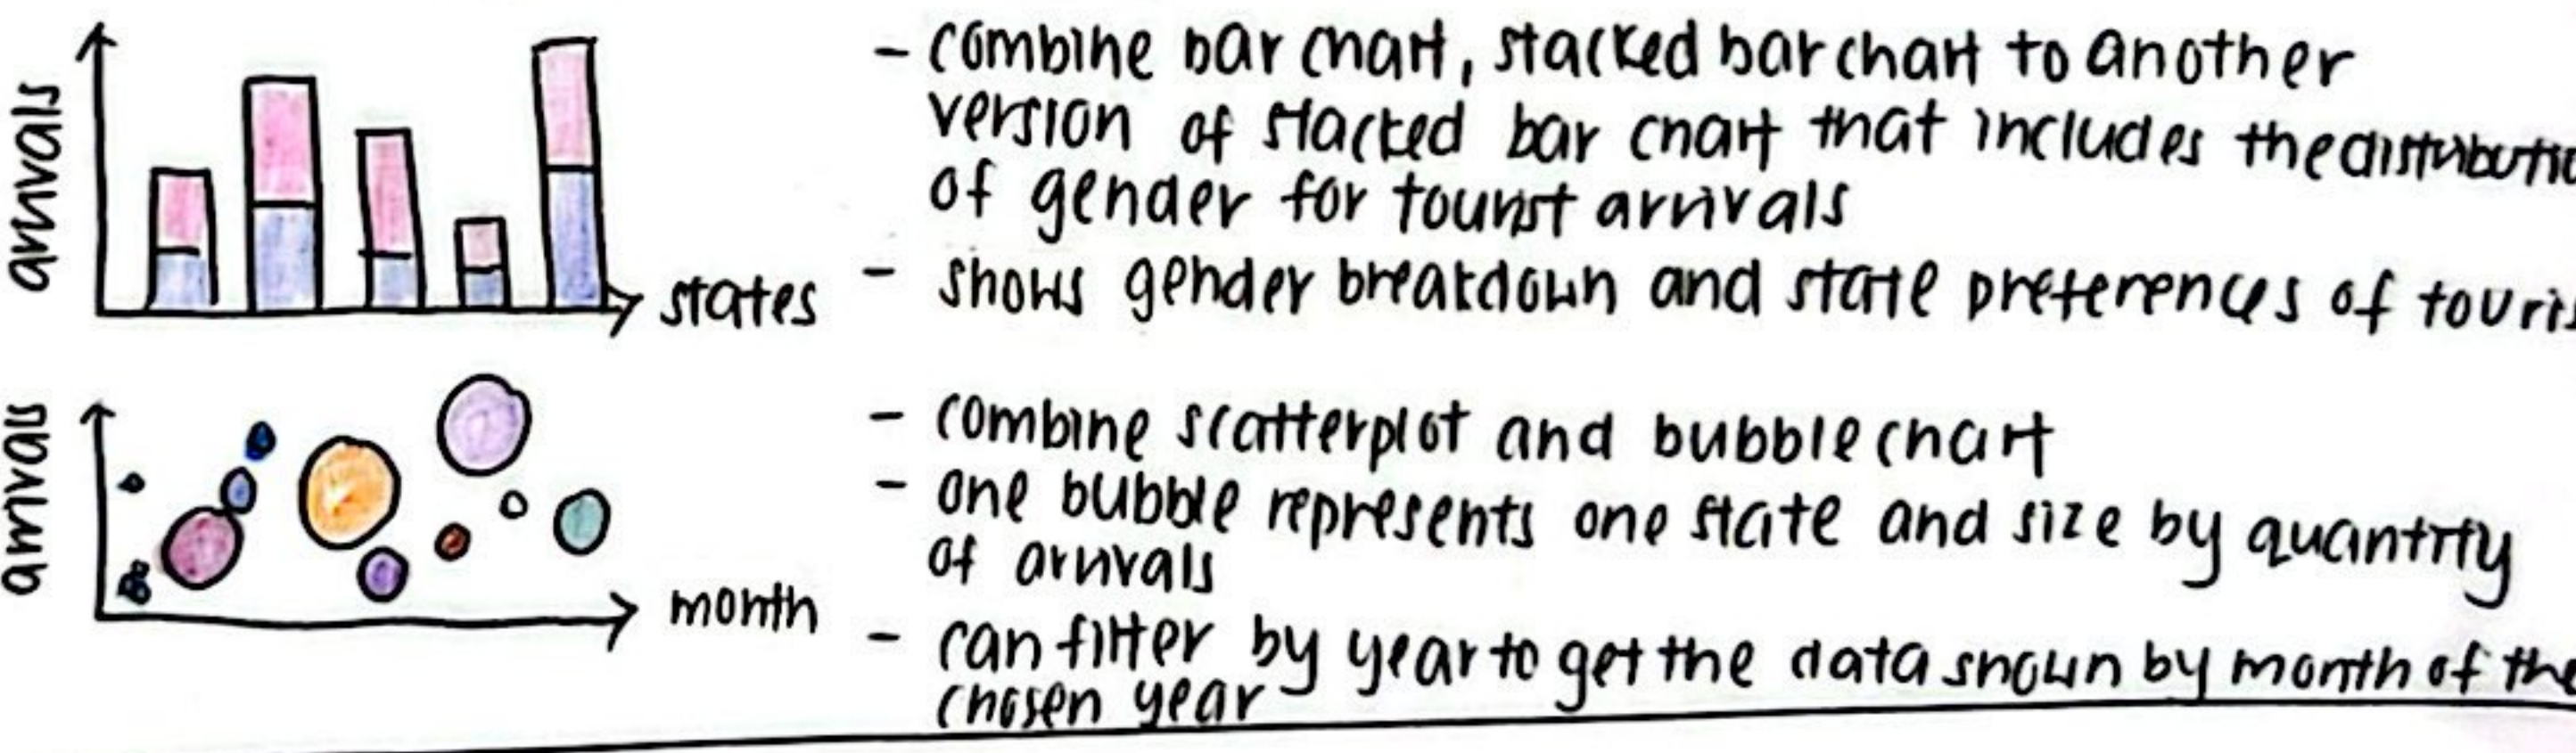 arrivals
states
- combine bar chart, stacked bar chart to another
version of stacked bar chart that includes the distributio
of gender for tourist arrivals
- shows gender breakdown and state preferences of touris
arrivals
month
- combine scatterplot and bubble chart
- one bubble represents one state and size by quantity
of arrivals
- can filter by year to get the data shown by month of the
chosen year